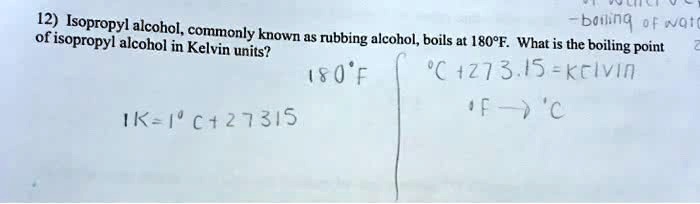 -boiling of wat
12) Isopropyl alcohol, commonly known as rubbing alcohol, boils at 180°F. What is the boiling point
of isopropyl alcohol in Kelvin units?
180°F
°C +273.15 = Kelvin
°F → °C
1K = 1° C + 27315